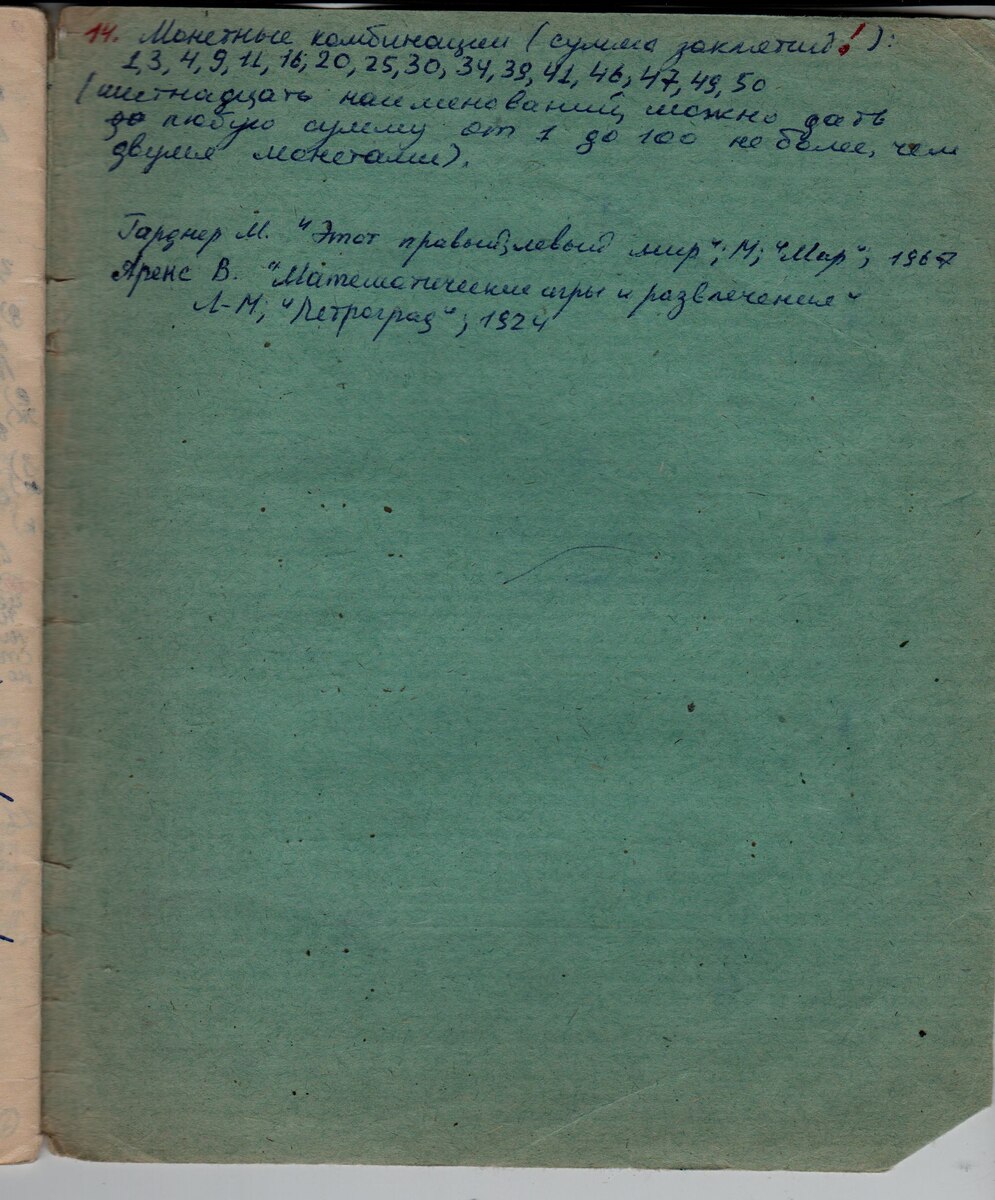 14. Монетные комбинации (сумма заклятий!):
1,3,4,9,11,16,20,25,30,34,39,41,46,47,49,50
(шестнадцать наименований, можно дать
любую сумму от 1 до 100 не более, чем
двумя монетами).
Гарднер М. "Этот правый, левый мир"; М; "Мир"; 1967
Аренс В. "Математические игры и развлечения"
Л-М; "Петроград"; 1924